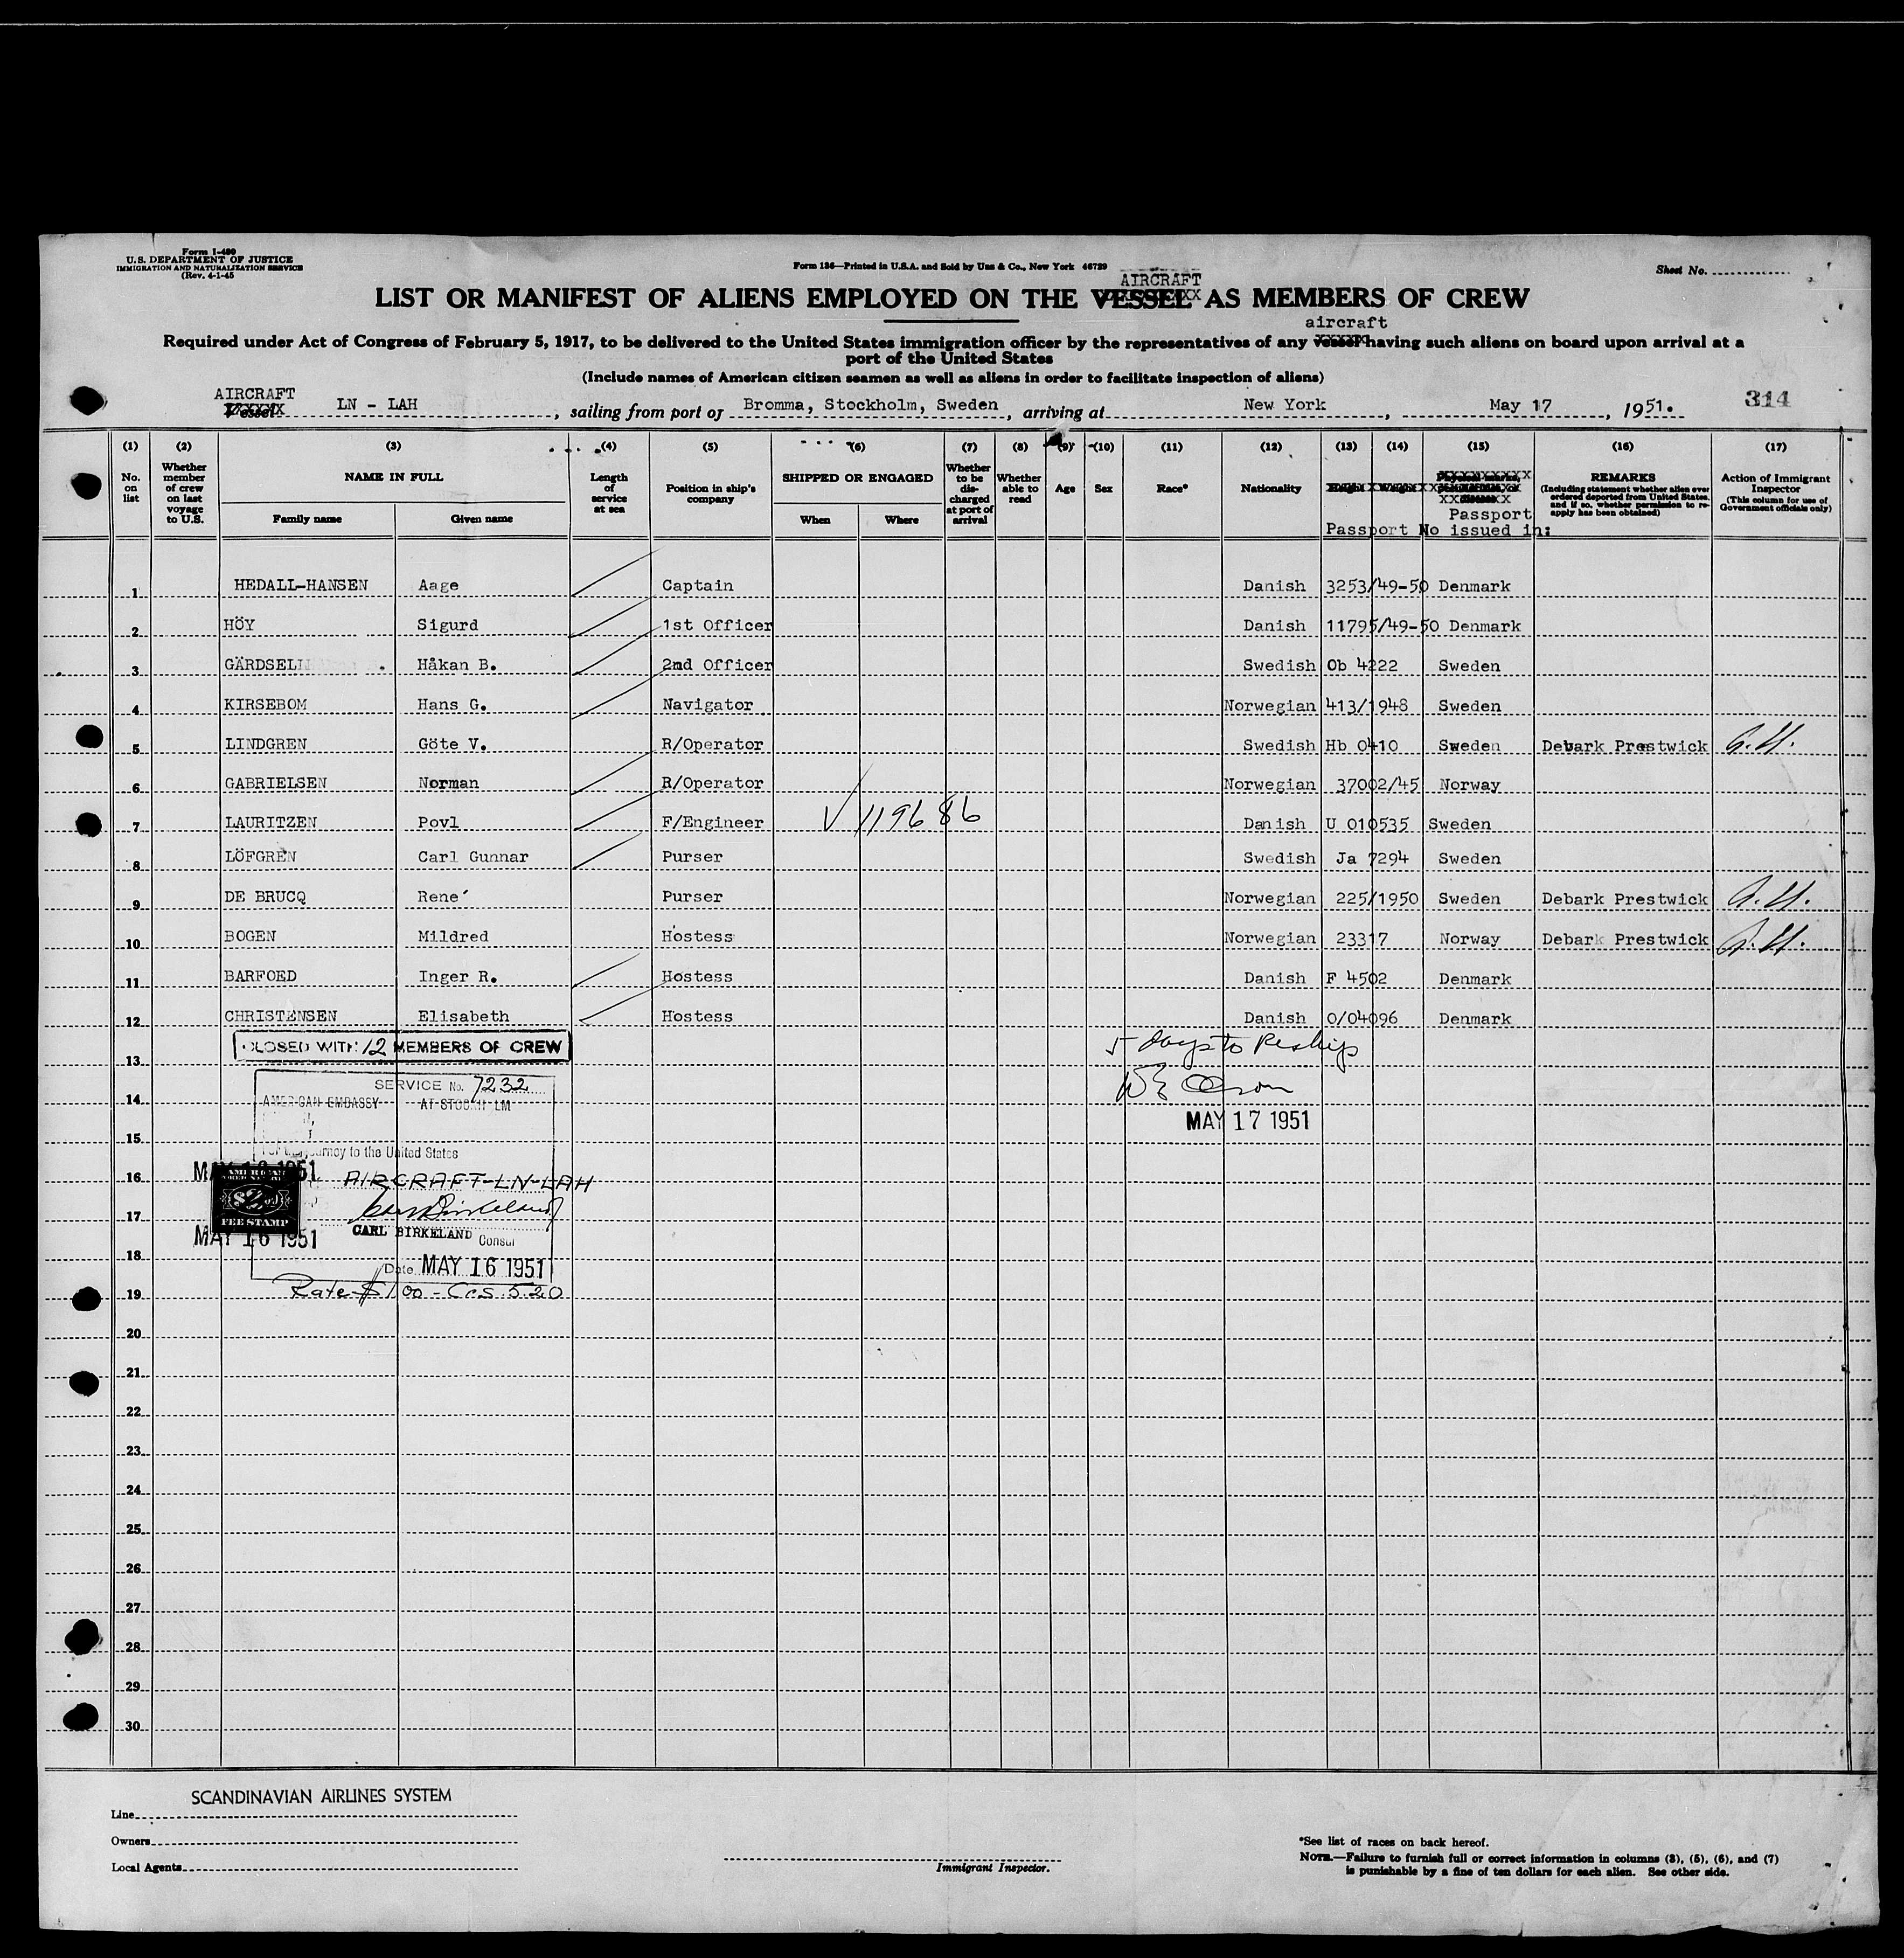 Form I-489
U.S. DEPARTMENT OF JUSTICE
IMMIGRATION AND NATURALIZATION SERVICE
(Rev. 4-1-45
Form 136—Printed in U.S.A. and Sold by Unz & Co., New York 46729
Sheet No.
AIRCRAFT
LIST OR MANIFEST OF ALIENS EMPLOYED ON THE VESSEL AS MEMBERS OF CREW
aircraft
Required under Act of Congress of February 5, 1917, to be delivered to the United States immigration officer by the representatives of any vessel having such aliens on board upon arrival at a
port of the United States
(Include names of American citizen seamen as well as aliens in order to facilitate inspection of aliens)
AIRCRAFT
Vessel LN - LAH , sailing from port of Bromma, Stockholm, Sweden, arriving at New York, May 17, 1951. 314
(1) (2) (3) (4) (5) (6) (7) (8) (9) (10) (11) (12) (13) (14) (15) (16) (17)
No. on list
Whether member of crew on last voyage to U.S.
NAME IN FULL
Family name Given name
Length of service at sea
Position in ship's company
SHIPPED OR ENGAGED
When Where
Whether to be discharged at port of arrival
Whether able to read
Age
Sex
Race*
Nationality
Height Weight
Physical marks,
disease
Passport
Passport No issued in:
REMARKS
(Including statement whether alien ever ordered deported from United States, and if so, whether permission to reapply has been obtained)
Action of Immigrant Inspector
(This column for use of Government officials only)
1 HEDALL-HANSEN Aage Captain Danish 3253/49-50 Denmark
2 HÖY Sigurd 1st Officer Danish 11795/49-50 Denmark
3 GÄRDSELL Håkan B. 2nd Officer Swedish Ob 4222 Sweden
4 KIRSEBOM Hans G. Navigator Norwegian 413/1948 Sweden
5 LINDGREN Göte V. R/Operator Swedish Hb 0410 Sweden Debark Prestwick
6 GABRIELSEN Norman R/Operator Norwegian 37002/45 Norway
7 LAURITZEN Povl F/Engineer √ 119686 Danish U 010535 Sweden
8 LÖFGREN Carl Gunnar Purser Swedish Ja 7294 Sweden
9 DE BRUCQ René Purser Norwegian 225/1950 Sweden Debark Prestwick
10 BOGEN Mildred Hostess Norwegian 23317 Norway Debark Prestwick
11 BARFOED Inger R. Hostess Danish F 4502 Denmark
12 CHRISTENSEN Elisabeth Hostess Danish O/04096 Denmark
CLOSED WITH 12 MEMBERS OF CREW
5 days to Reship
13
SERVICE No. 7232
14
AMERICAN EMBASSY AT STOCKHOLM
MAY 17 1951
15
For the journey to the United States
16
AIRCRAFT-LN-LAH
AMERICAN
$2.00
FEE STAMP
17
CARL BIRKELAND Consul
MAY 16 1951
18
Date MAY 16 1951
19
Rate $1.00 - Crs 5.20
20
21
22
23
24
25
26
27
28
29
30
SCANDINAVIAN AIRLINES SYSTEM
Line
Owners
Local Agents
Immigrant Inspector.
*See list of races on back hereof.
NOTE.—Failure to furnish full or correct information in columns (3), (5), (6), and (7)
is punishable by a fine of ten dollars for each alien. See other side.